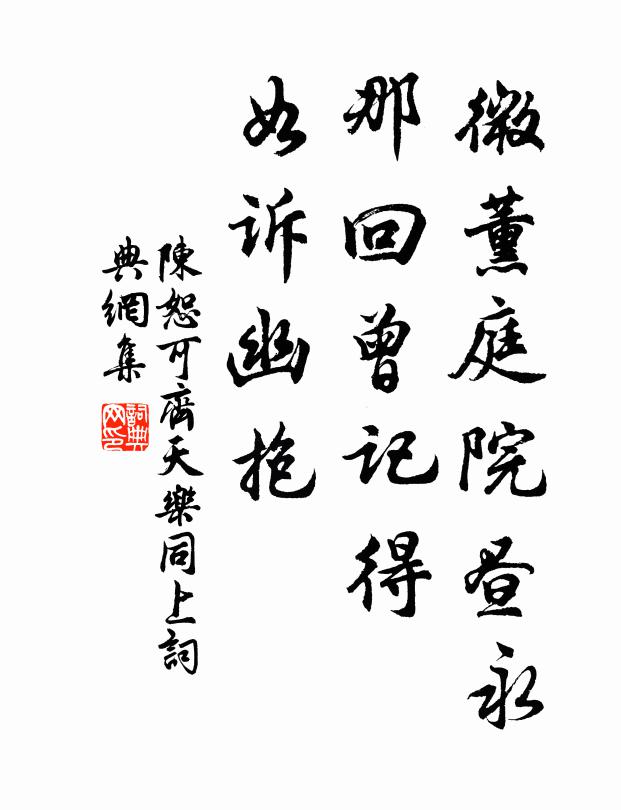 微薰庭院昼永
那回曾记得
如诉幽抱
陳恕可齊天樂同上詞
典網集
詞典网印